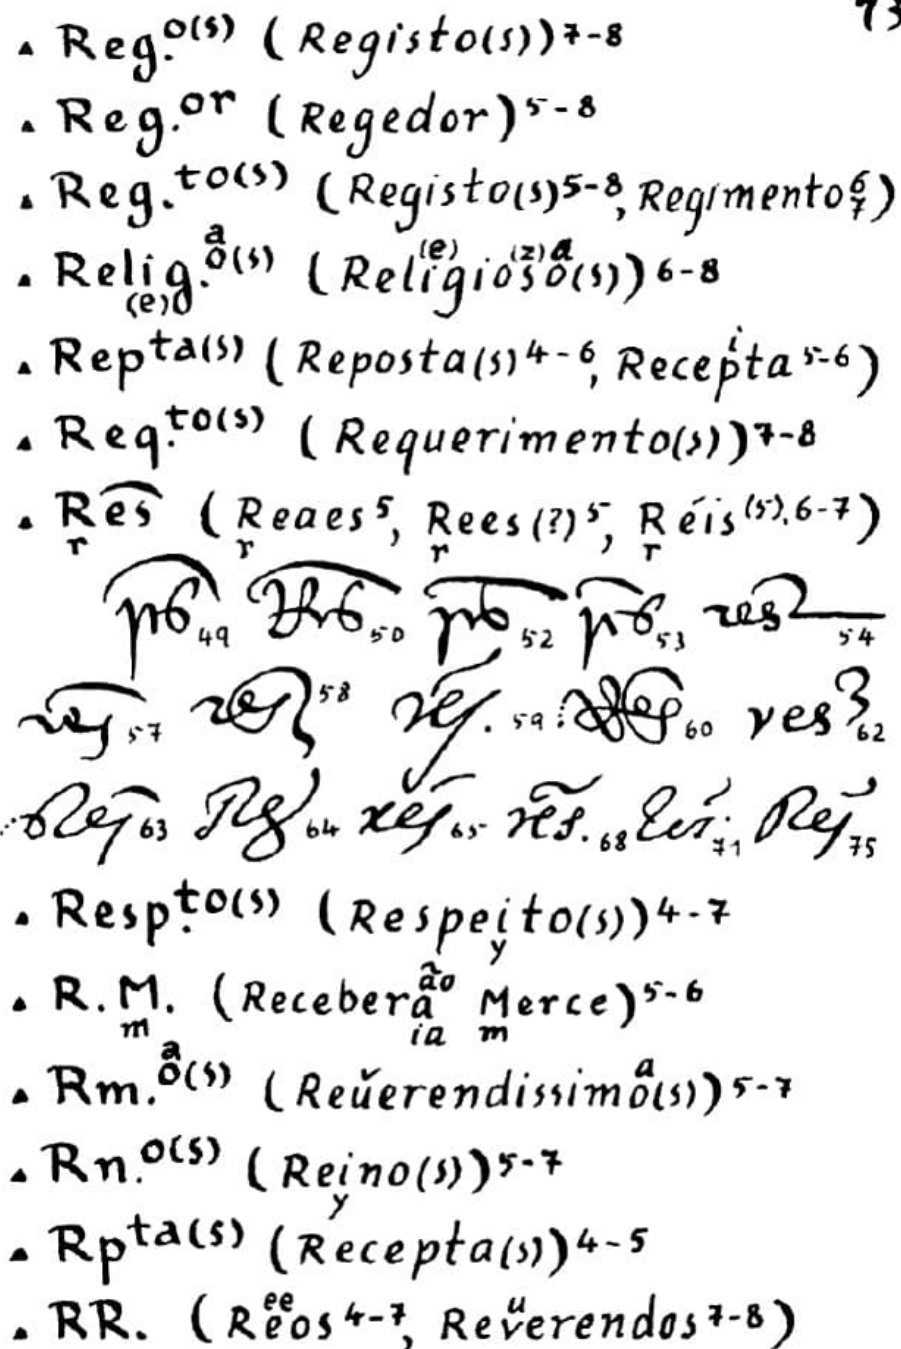 73
. Reg.o(s) (Registo(s)) 7-8
. Reg.or (Regedor) 5-8
. Reg.to(s) (Registo(s) 5-8, Regimento 6 7)
. Relig.o(s) a (e) (Religioso(s)) (e) (z) a 6-8
. Repta(s) (Reposta(s) 4-6, Recepta i 5-6)
. Req.to(s) (Requerimento(s)) 7-8
. Res r (Reaes 5, Rees (?) 5, Réis (5), 6-7) r r r
49 50 52 53 res 54
res 57 res 58 res. 59 60 res 62
Res 63 64 res 65 res. 68 71 Res 75
. Resp.to(s) (Respeito(s)) y 4-7
. R. M. m (Receberá ão ia Merce m) 5-6
. Rm.o(s) a (Reuerendissimo(s)) v a 5-7
. Rn.o(s) (Reino(s)) y 5-7
. Rpta(s) (Recepta(s)) 4-5
. RR. (Reos ee 4-7, Reverendos u 7-8)